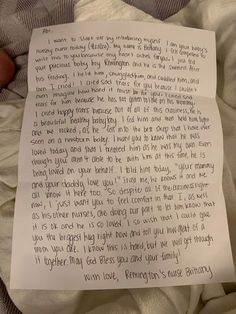 Abi,
I want to start off by introducing myself. I am your baby's
nursery nurse today (       ), my name is Brittany. I felt compelled to
write this to you because my heart aches for you. I just fed
your precious baby boy Remington and he is the sweetest. After
his feeding, I held him, snuggled him, and cuddled him, and
then I cried. I cried sad tears for you because I couldn't
even imagine how hard it must be for you. I cried sad
tears for him because he has not gotten to be with his mommy.
I cried happy tears because out of all of this craziness, he is
a beautiful healthy baby boy. I fed him and then held him tight
and we rocked, as he fell into the best sleep that I have ever
seen on a newborn baby. I want you to know that he was
loved today and that I treated him as he was my own. Even
though you aren't able to be with him at this time, he is
being loved on your behalf. I told him today, "your mommy
and your daddy love you!" Trust me, he knows it and we
all know it here too. So despite all of the           right
now, I just want you to feel comfort in that I, as well
as his other nurses, are doing our part to let him know that
it is ok and he is so loved. I so wish that I could give
you the biggest hug right now and tell you how great of a
mom you are. I know this is hard, but we will get through
it together. May God Bless you and your family!
With love, Remington's nurse Brittany